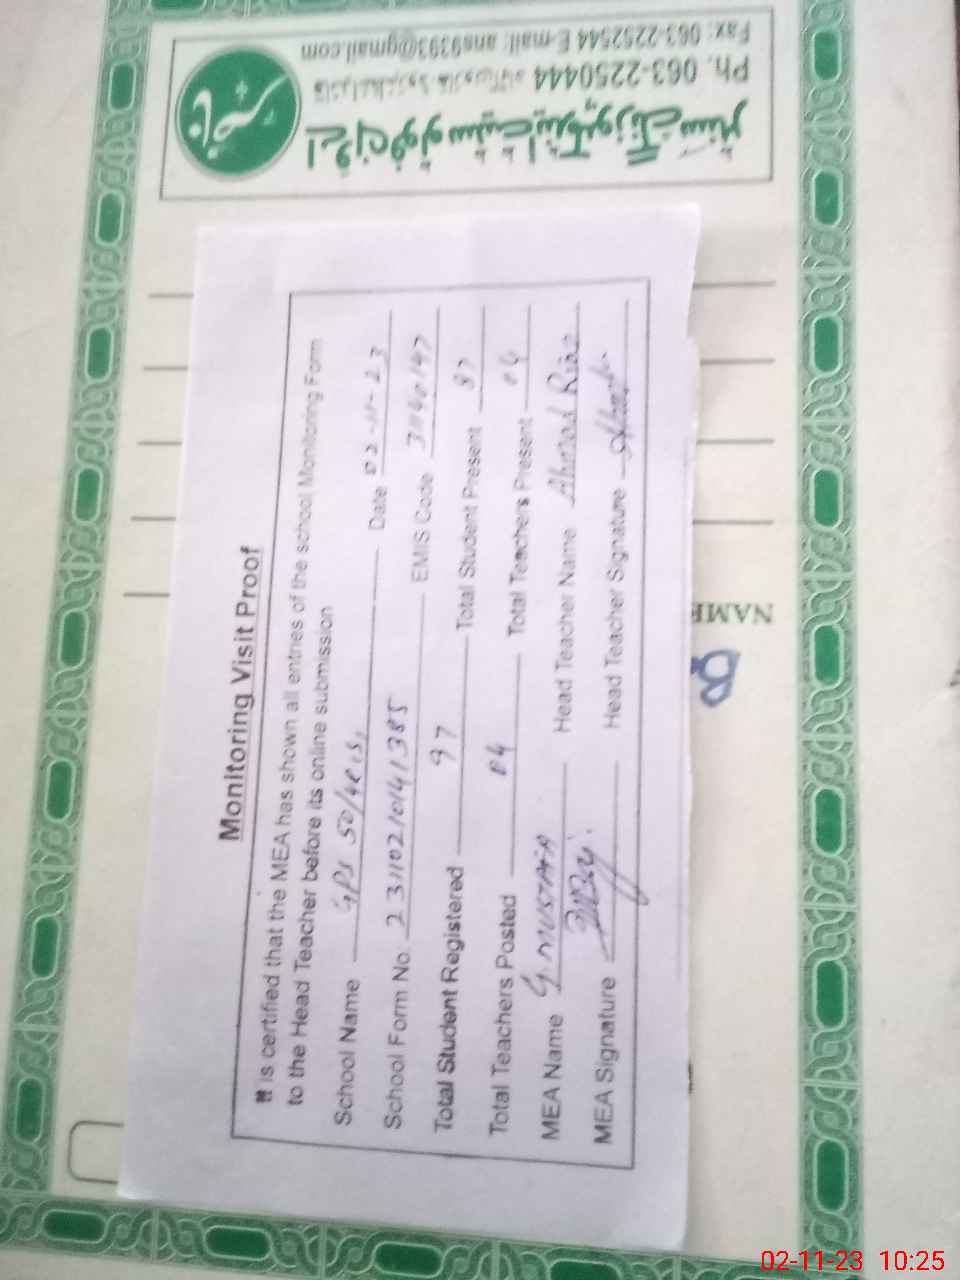 Monitoring Visit Proof
It is certified that the MEA has shown all entries of the school Monitoring Form
to the Head Teacher before its online submission
School Name GPS 50/4R is, Date 02-11-23
School Form No. 23110210141385 EMIS Code 31140147
Total Student Registered 97 Total Student Present 87
Total Teachers Posted 04 Total Teachers Present 04
MEA Name G. MUSTAFA Head Teacher Name Ahmad Riaz
MEA Signature Head Teacher Signature
NAME
Ph. 063-2250444
Fax: 063-2252544 E-mail: ans9393@gmail.com
02-11-23 10:25